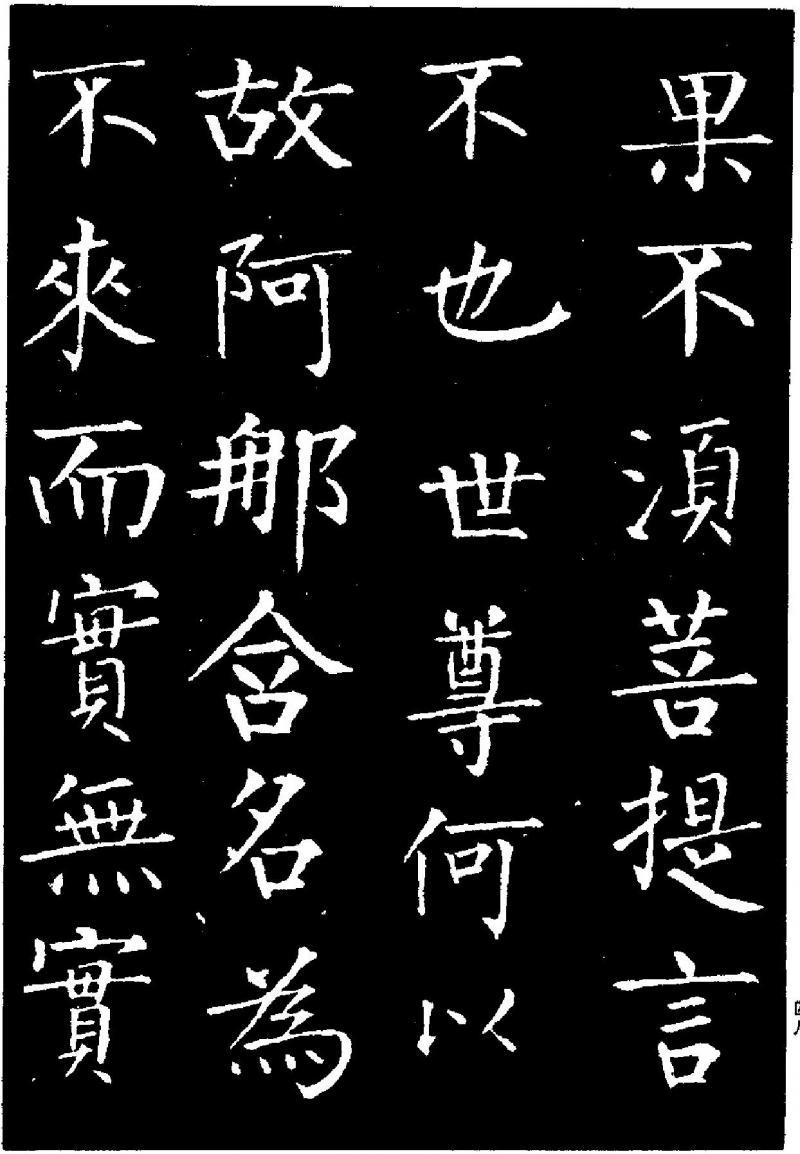 果不須菩提言
不也世尊何以
故阿那含名為
不來而實無實
四八